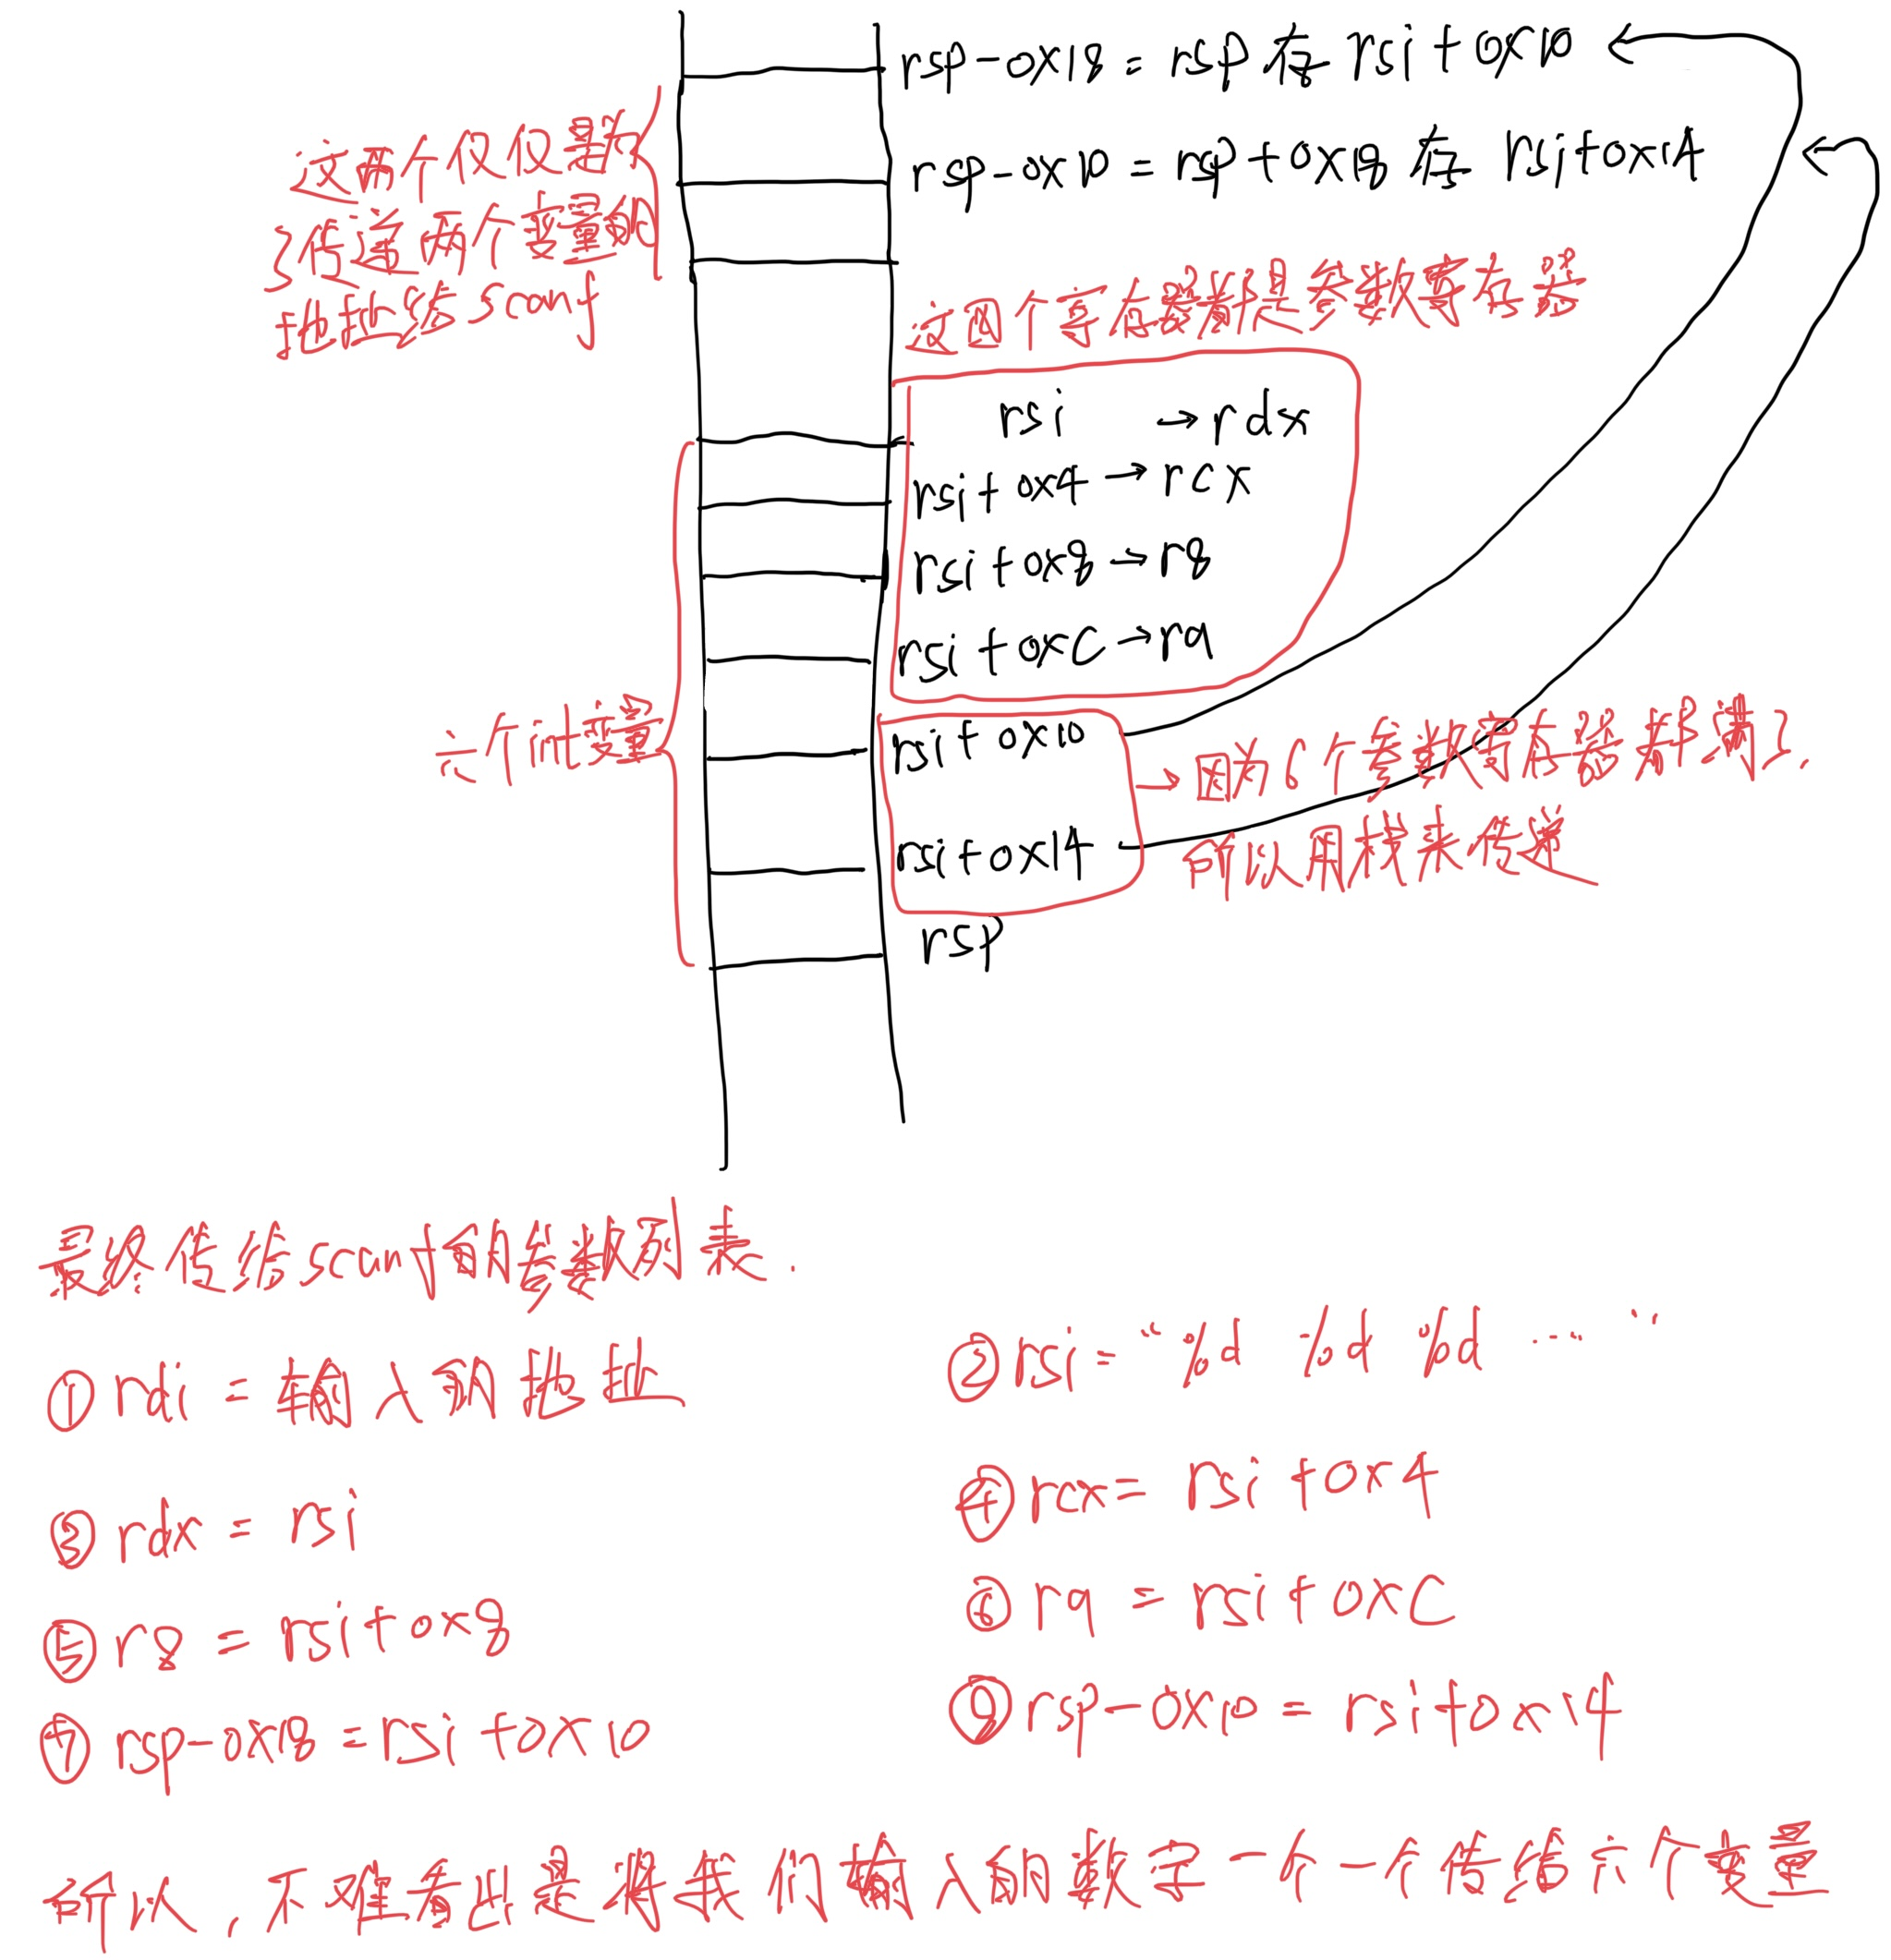 rsp-0x18 = rsp 存 rsi+0x10
rsp-0x10 = rsp+0x18 存 rsi+0x14
这两个仅仅是为
了传送两个变量的
地址给 scanf
这四个寄存器都是参数寄存器
rsi → rdx
rsi+0x4 → rcx
rsi+0x8 → r8
rsi+0xC → r9
六个int变量
rsi+0x10
rsi+0x14
→因为6个参数寄存器都满了,
所以用栈来传递
rsp
最终传给scanf的参数列表.
① rdi = 输入的地址
② rsi = "%d %d %d ... "
③ rdx = rsi
④ rcx = rsi+0x4
⑤ r8 = rsi+0x8
⑥ r9 = rsi+0xC
⑦ rsp-0x18 = rsi+0x10
⑧ rsp-0x10 = rsi+0x14
所以,不难看出是将我们输入的数字一个一个传给六个变量